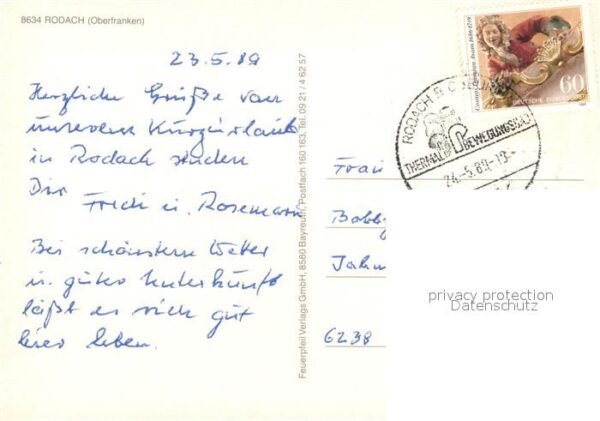 8634 RODACH (Oberfranken)
23.5.89
Herzliche Grüße von
unserem Kurzurlaub
in Rodach senden
Dir Fredi u. Rosemarie
Bei schönstem Wetter
u. guter Unterkunft
läßt es sich gut
hier leben.
Feuerpfeil Verlags GmbH, 8580 Bayreuth, Postfach 160 163, Tel. 09 21 / 4 62 57
Cosmas Damian Asam 1686-1739
60
DEUTSCHE BUNDESPOST
RODACH B. COBURG
THERMAL BEWEGUNGSBAD
24.-5.89.-18
Frau
Babb
Jahn
6238
privacy protection
Datenschutz